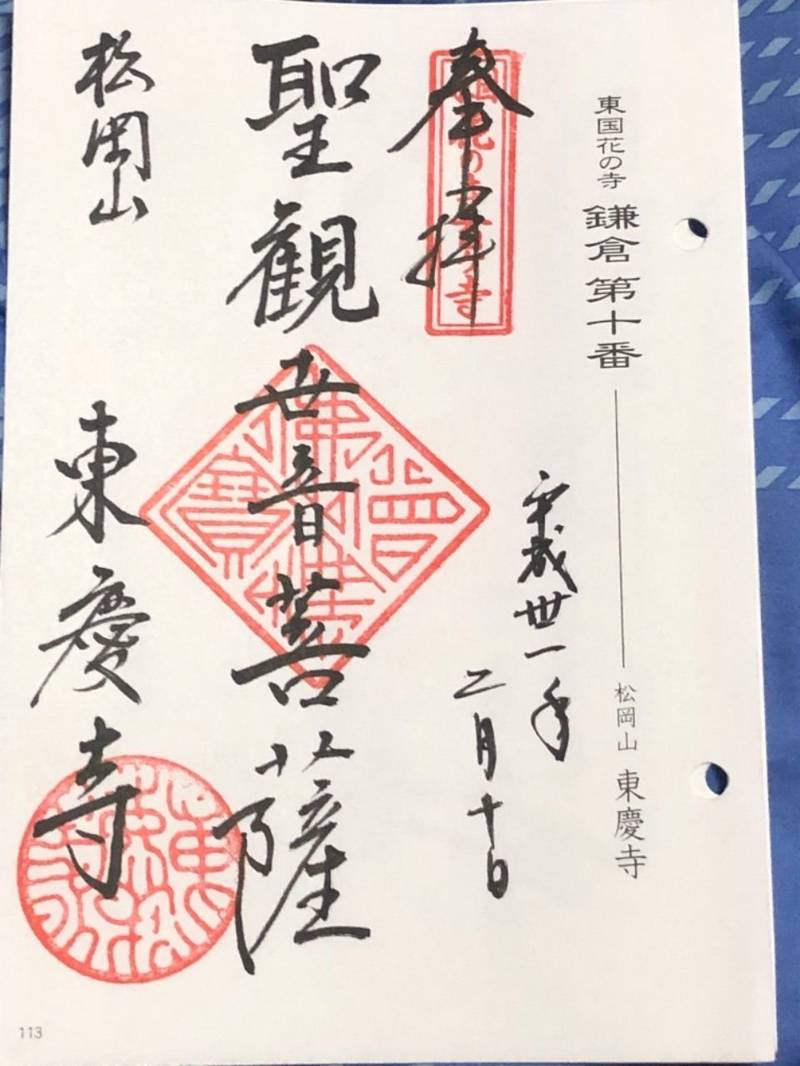 東国花の寺 鎌倉第十番
松岡山 東慶寺
奉拝
平成丗一年
二月十日
聖観世音菩薩
松岡山
東慶寺
佛法僧寶
113